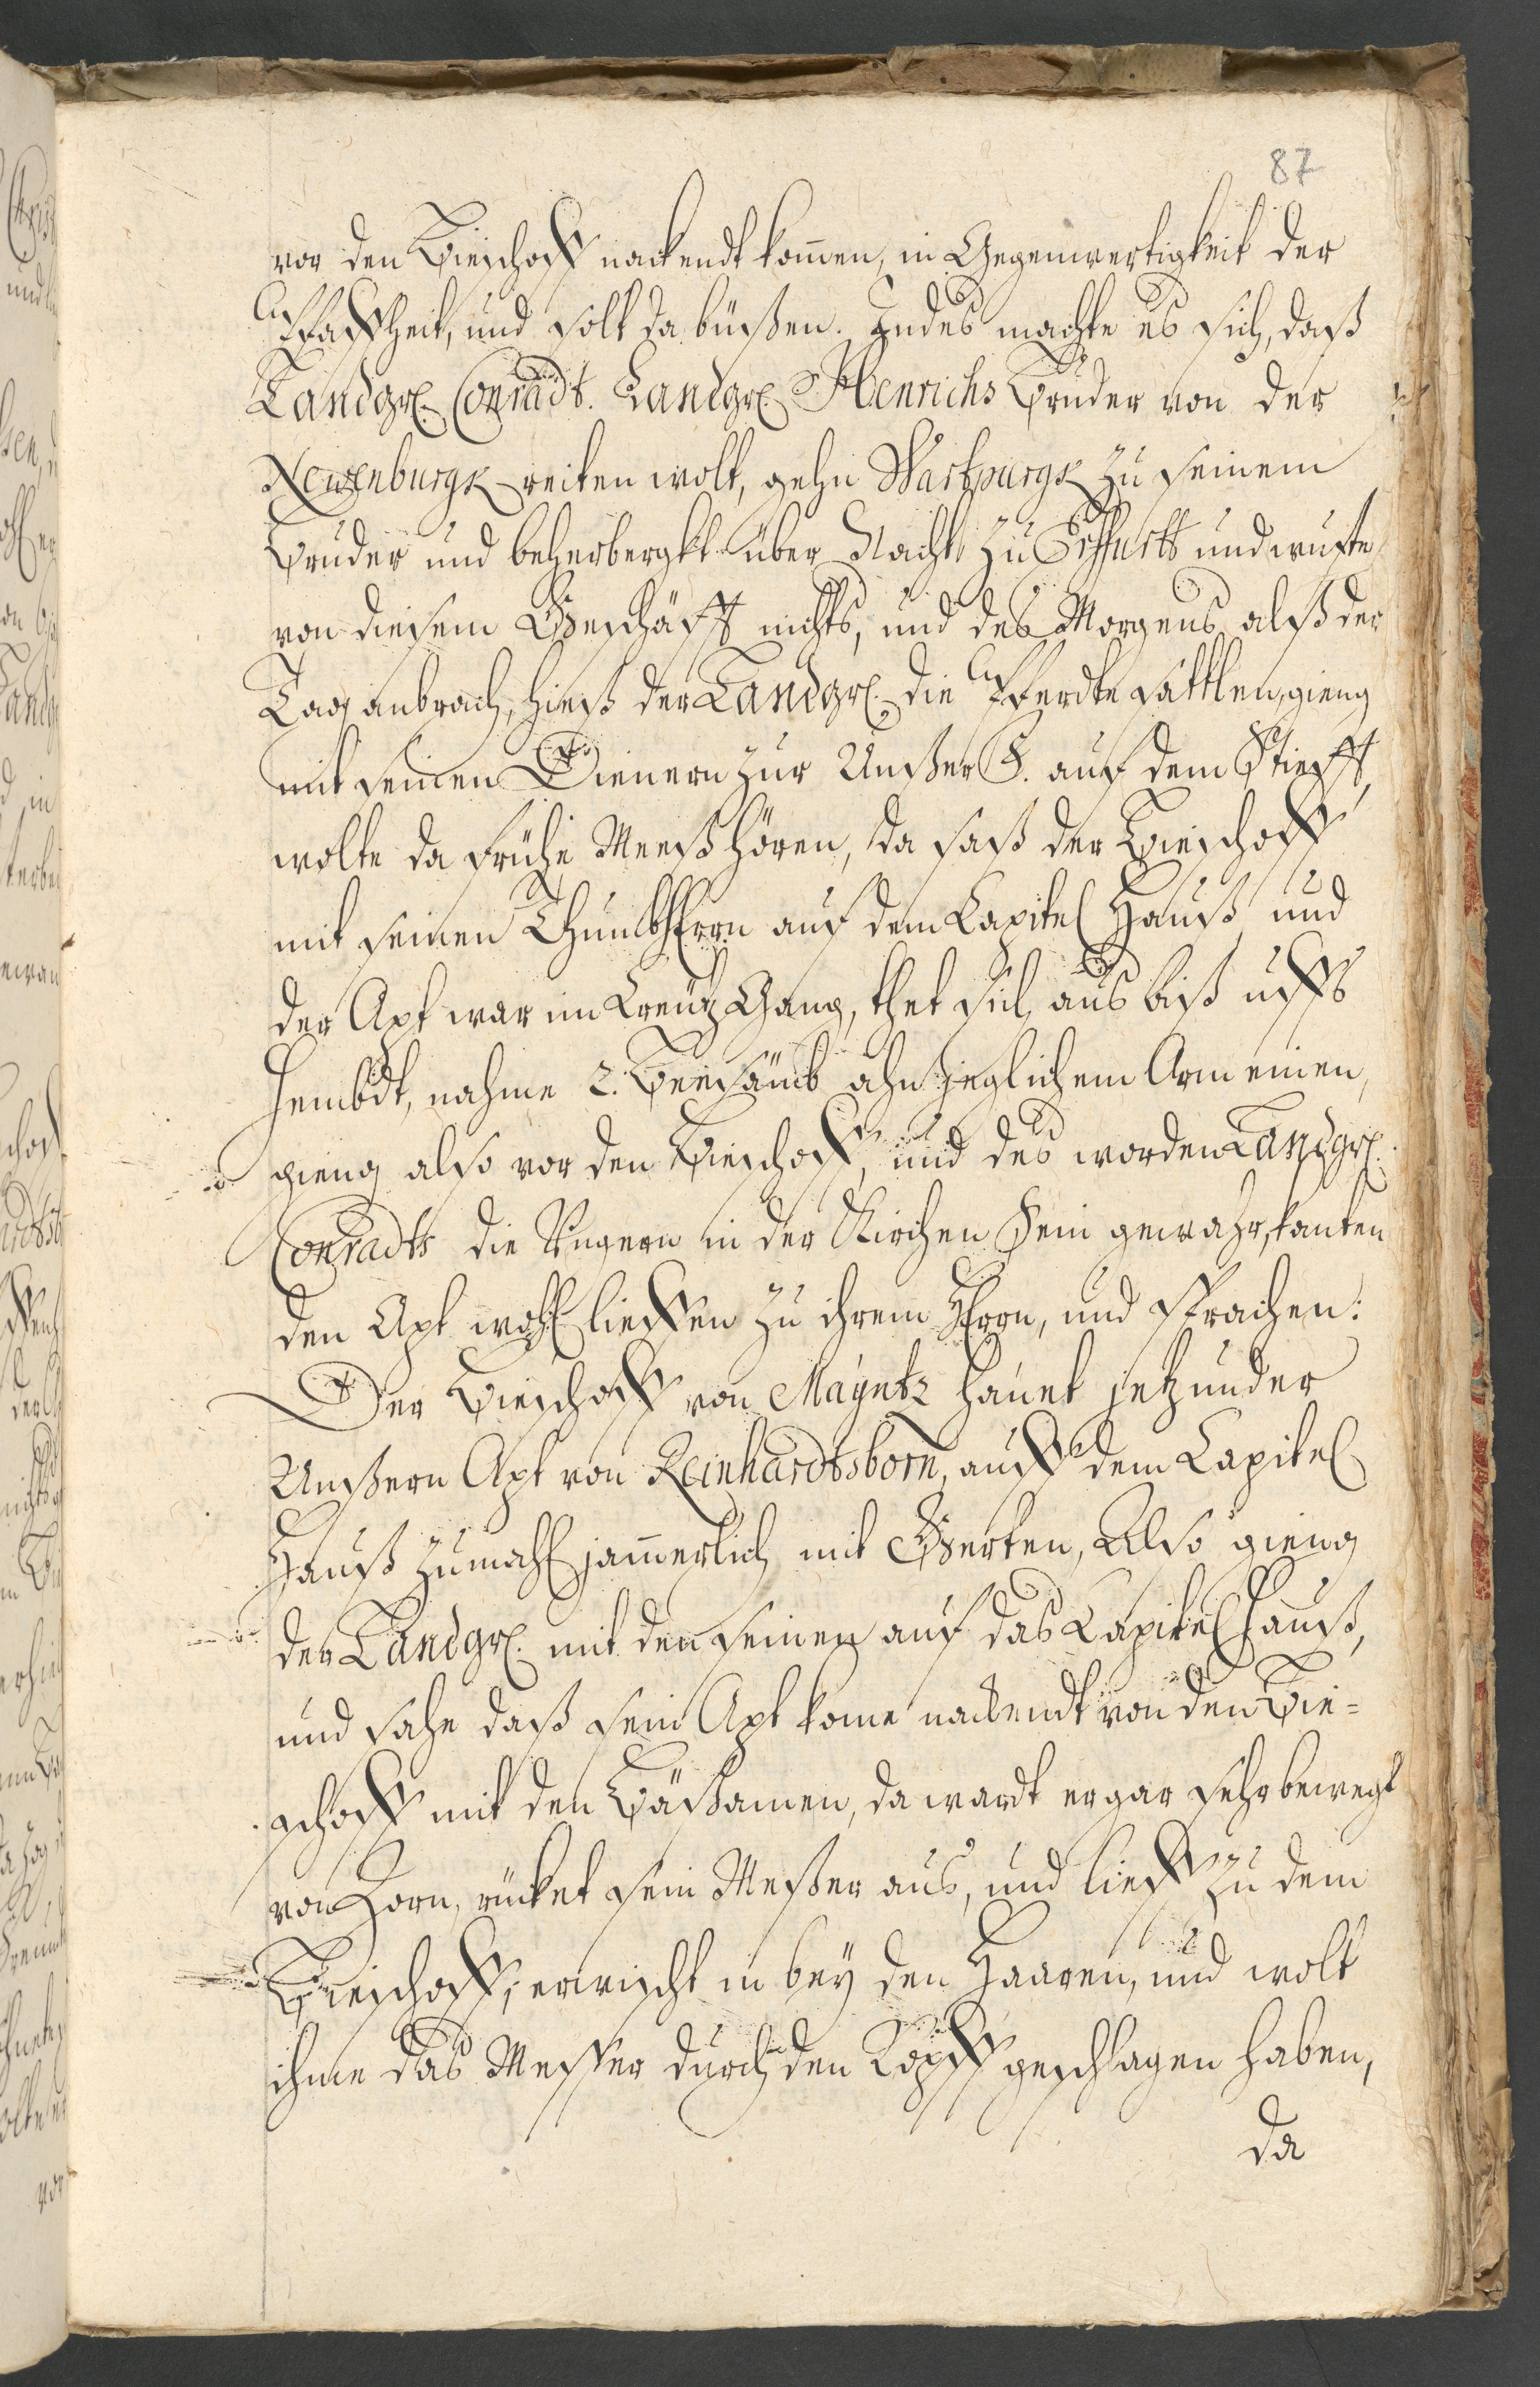 87
vor den Bieschoff nackendt kom̄en, in Gegenwertigkeit der
Pfaffheit, und solt da büßen. Indes machte es sich, daß
Landgr. Conradt. Landgr. Henrichs Bruder von der
Newenburgk reiten wolt, gehn Wartpurgk zu seinem
Bruder und beherbergkt über Nacht zu Erffurtt und wuste
von diesem Geschäfft nichts, und des Morgens alß der
Tag anbrach, hieß der Landgr. die Pferdte sattlen, gieng
mit seinen Dienern zur Unßer F. auf dem Stiefft,
wolte da frühe Meeß hören, da saß der Bieschoff
mit seinen Thumbherrn auf dem Capitel Hauß und
der Apt war im Creutz Gang, thet sich aus biß uffs
Hembdt, nahme 2. Beesäum ahn jeglichem Arm einen,
gieng also vor den Bieschoff, und des worden Landgr.
Conradts die Jungern in der Kirchen sein gewahr, kanten
den Apt wohl lieffen zu ihrem Herrn, und sprachen:
Der Bieschoff von Mayntz hauet jetzunder
Unßern Apt von Reinhardtsborn, auff dem Capitel
Hauß zumahl jam̄erlich mit Gerten, Also gieng
der Landgr. mit den seinen auf das Capitel Hauß,
und sahe daß sein Apt kome nackendt von den Bie=
schoff mit den Bäßamen, da wardt er gar sehr bewegt
von Zorn, rücket sein Meßer aus, und lieff zu dem
Bieschoff, erwischt in bey den Haaren, und wolt
ihme das Messer durch den Kopff geschlagen haben,
da